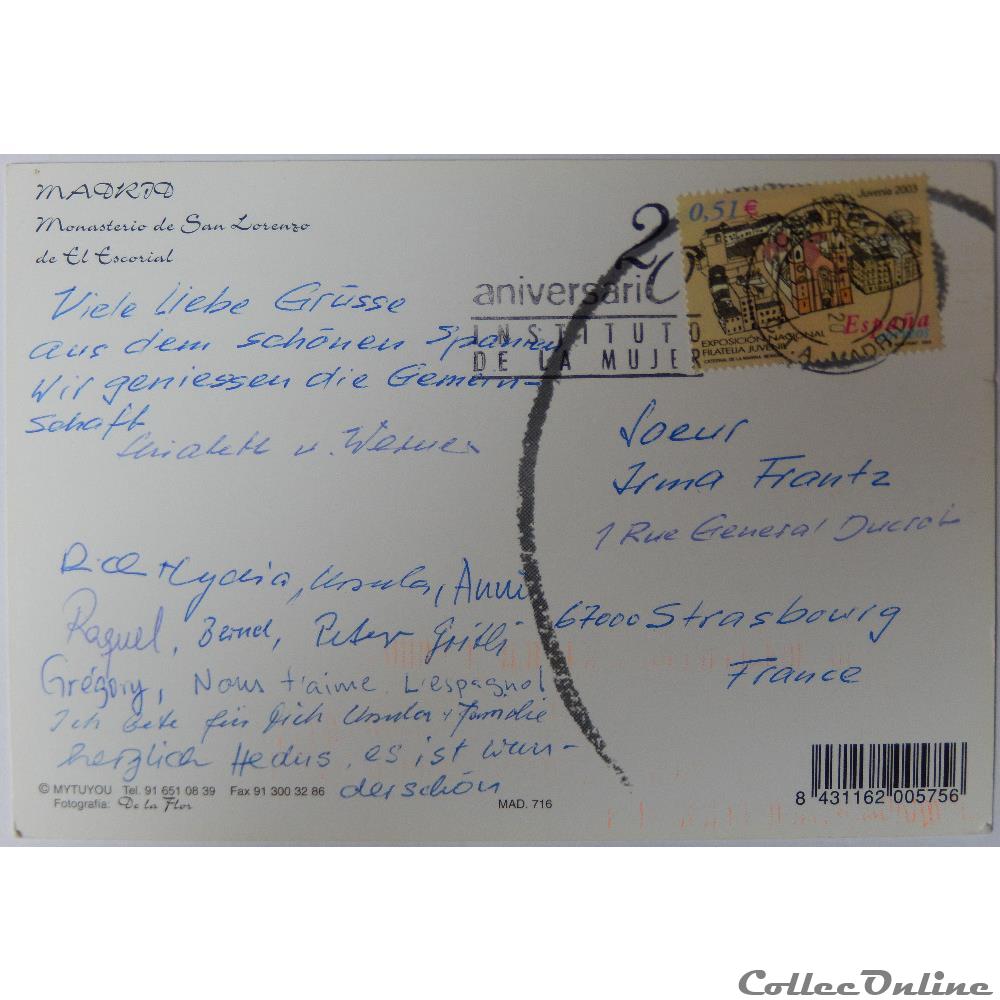 MADRID
Monasterio de San Lorenzo
de El Escorial
Viele liebe Grüsse
aus dem schönen Spanien
Wir geniessen die Gemein-
schaft
Elisabeth u. Werner
20
aniversario
INSTITUTO
DE LA MUJER
0,51€
Juvenia 2003
EXPOSICIÓN NACIONAL
FILATELIA JUVENIL
España
MADRID
Soeur
Irma Frantz
1 Rue General Ducrot
67000 Strasbourg
France
Lydia, Ursula, Anni
Raquel, Bernd, Peter Gritli
Grégory, Nous t'aime L'espagnol
Ich bete für Dich Ursula + Familie
herzlich Hedus, es ist wun-
derschön
© MYTUYOU Tel. 91 651 08 39 Fax 91 300 32 86
Fotografía: De la Flor
MAD. 716
8 431162 005756
CollecOnline